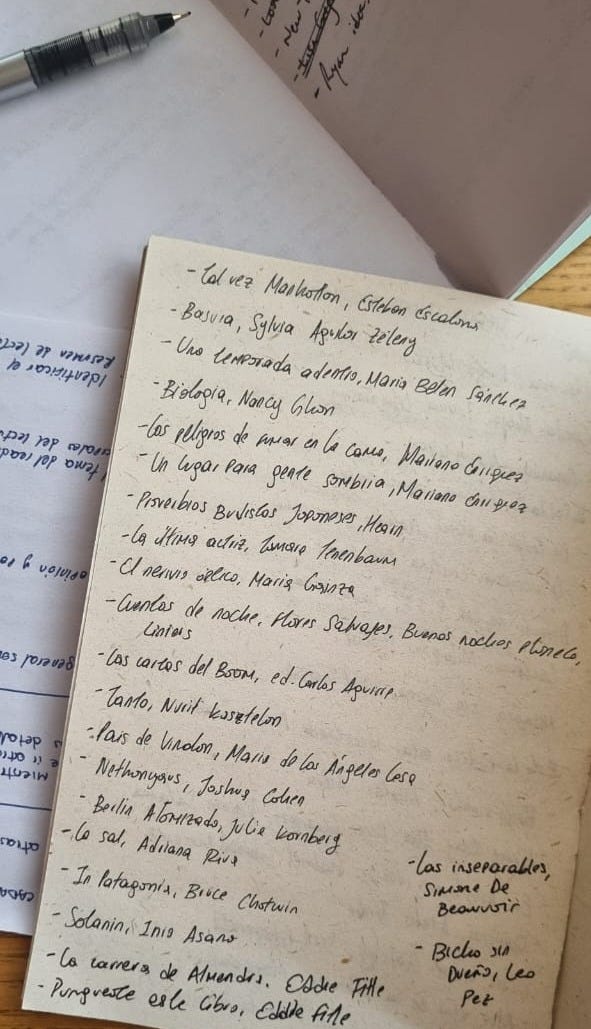 - New
- Ryan
- Tal vez Manhattan, Esteban Escalona
- Basura, Sylvia Aguilar Zéleny
- Una temporada adentro, María Belén Sánchez
- Biología, Nancy
- Los peligros de fumar en la cama, Mariana Enriquez
- Un lugar para gente sombría, Mariana Enriquez
- Proverbios Budistas Japoneses, Hearn
- La última actriz, Tamara Tenenbaum
- El nervio óptico, María Gainza
- Cuentos de noche, Flores Salvajes, Buenas noches planeta,
Liniers
- Las cartas del Boom, ed. Carlos Aguirre
- Tanto, Nurit Kasztelan
- País de Vinalon, María de los Ángeles
- Nethanyaus, Joshua Cohen
- Berlín Atomizado, Julia Kornberg
- La sal, Adriana Riva
- In Patagonia, Bruce Chatwin
- Solanin, Inio Asano
- La carrera de Almendra. Eddie
- este libro, Eddie
- Las inseparables,
Simone De
Beauvoir
- Bicho sin
Dueño, Leo
Resumen de
Identificar el
tema del
opinión y
general